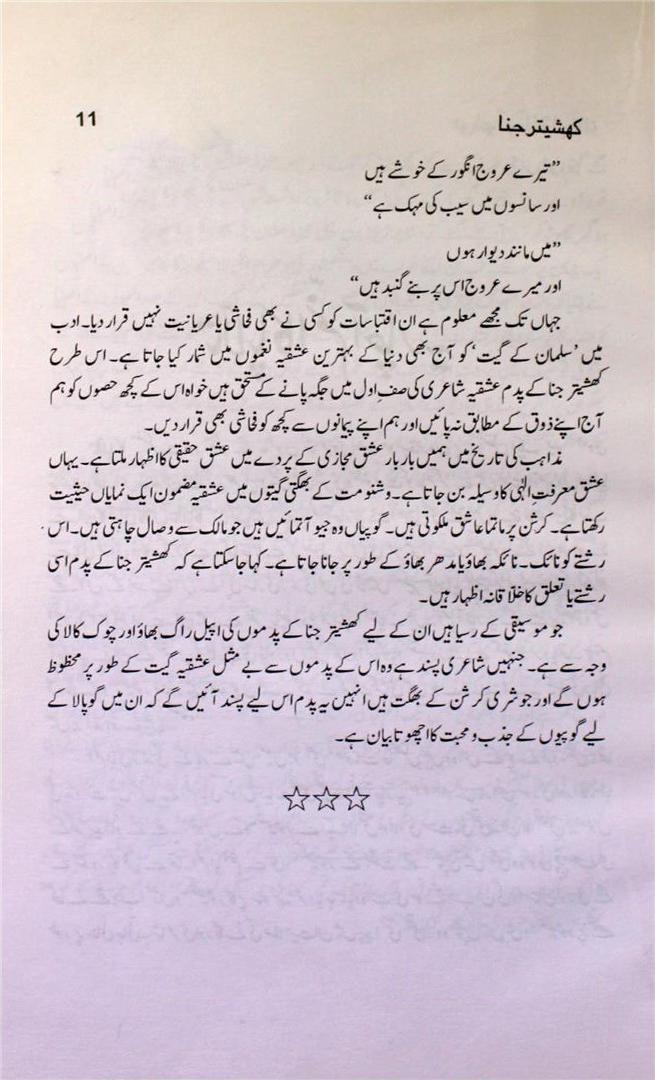 کھشیتر جنا
11
”تیرے عروج انگور کے خوشے ہیں
اور سانسوں میں سیب کی مہک ہے“
”میں مانند دیوار ہوں
اور میرے عروج اس پر بنے گنبد ہیں“
جہاں تک مجھے معلوم ہے ان اقتباسات کو کسی نے بھی فحاشی یا عریانیت نہیں قرار دیا۔ ادب
میں ’سلمان کے گیت‘ کو آج بھی دنیا کے بہترین عشقیہ نغموں میں شمار کیا جاتا ہے۔ اس طرح
کھشیتر جنا کے پدم عشقیہ شاعری کی صف اول میں جگہ پانے کے مستحق ہیں خواہ اس کے کچھ حصوں کو ہم
آج اپنے ذوق کے مطابق نہ پائیں اور ہم اپنے پیمانوں سے کچھ کو فحاشی بھی قرار دیں۔
مذاہب کی تاریخ میں ہمیں بار بار عشق مجازی کے پردے میں عشق حقیقی کا اظہار ملتا ہے۔ یہاں
عشق معرفتِ الٰہی کا وسیلہ بن جاتا ہے۔ وشنومت کے بھگتی گیتوں میں عشقیہ مضمون ایک نمایاں حیثیت
رکھتا ہے۔ کرشن پر ماتما عاشق ملکوتی ہیں۔ گوپیاں وہ جیو آتمائیں ہیں جو مالک سے وصال چاہتی ہیں۔ اس
رشتے کو نائک۔ نائکہ بھاؤ یا مدھر بھاؤ کے طور پر جانا جاتا ہے۔ کہا جا سکتا ہے کہ کھشیتر جنا کے پدم اسی
رشتے یا تعلق کا خلّاقانہ اظہار ہیں۔
جو موسیقی کے رسیا ہیں ان کے لیے کھشیتر جنا کے پدموں کی اپیل راگ بھاؤ اور چوک کالا کی
وجہ سے ہے۔ جنہیں شاعری پسند ہے وہ اس کے پدموں سے بے مثل عشقیہ گیت کے طور پر محظوظ
ہوں گے اور جو شری کرشن کے بھگت ہیں انہیں یہ پدم اس لیے پسند آئیں گے کہ ان میں گوپالا کے
لیے گوپیوں کے جذب و محبت کا اچھوتا بیان ہے۔
☆☆☆